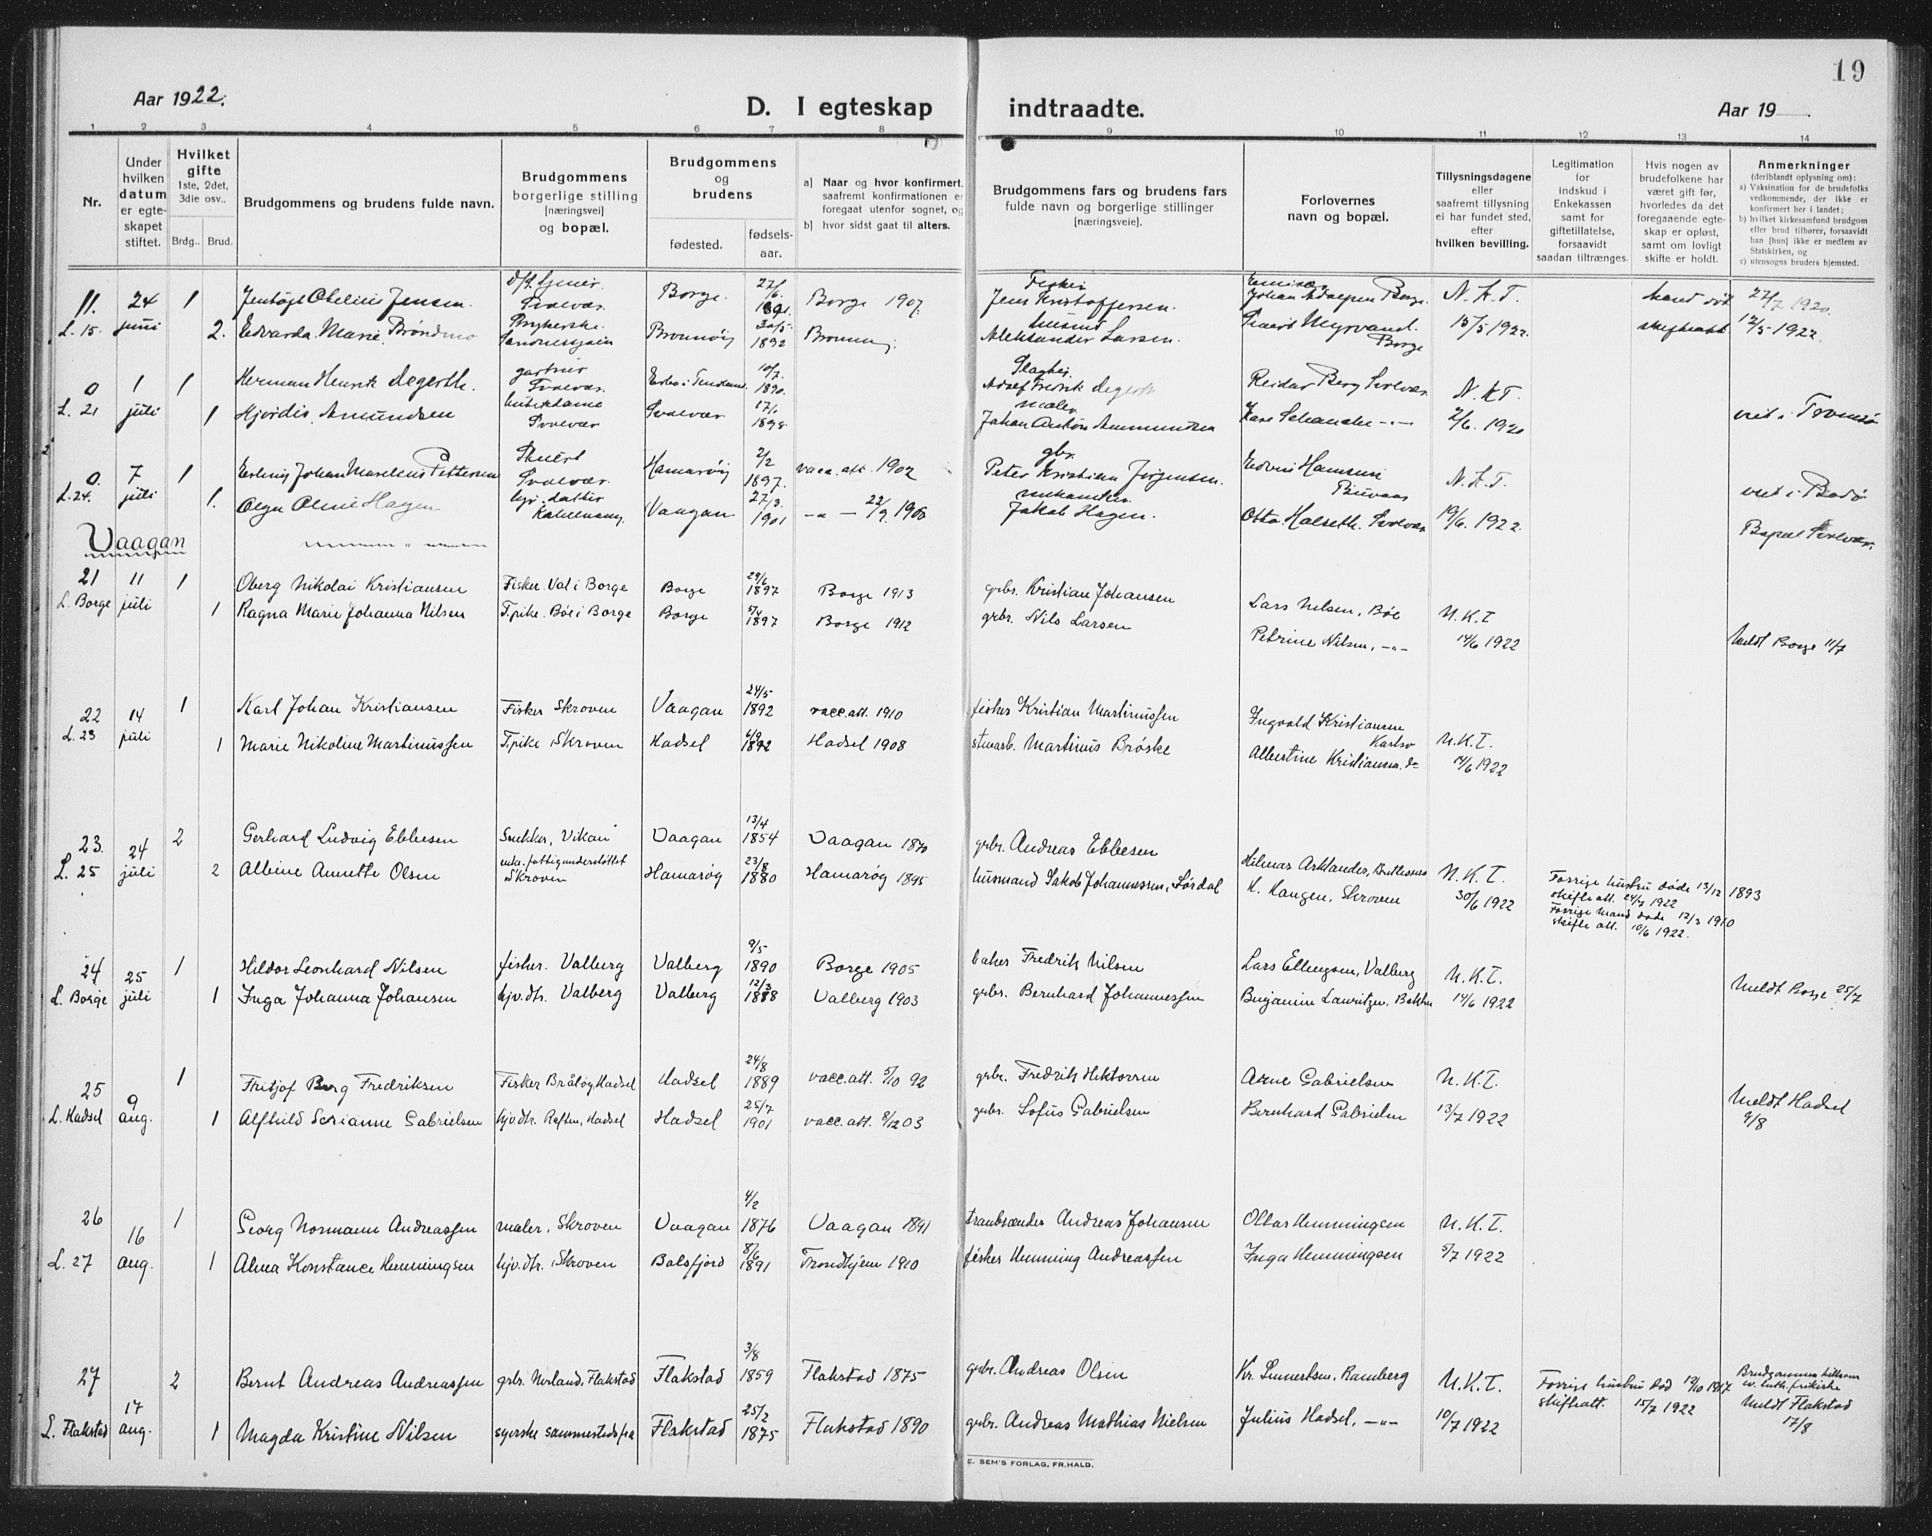 19
Aar 1922.
D. I egteskap indtraadte.
Aar 19
1 2 3 4 5 6 7 8 9 10 11 12 13 14
Nr.
Under hvilken datum er egteskapet stiftet.
Hvilket gifte 1ste, 2det, 3die osv..
Brdg.. Brud.
Brudgommens og brudens fulde navn.
Brudgommens borgerlige stilling [næringsvei] og bopæl.
Brudgommens og brudens
fødested. fødsels-aar.
a) Naar og hvor konfirmert, saafremt konfirmationen er foregaat utenfor sognet, og
b) hvor sidst gaat til alters.
Brudgommens fars og brudens fars fulde navn og borgerlige stillinger [næringsveie].
Forlovernes navn og bopæl.
Tillysningsdagene eller saafremt tillysning ei har fundet sted, efter hvilken bevilling.
Legitimation for indskud i Enkekassen samt for giftetillatelse, forsaavidt saadan tiltrænges.
Hvis nogen av brudefolkene har været gift før, hvorledes da det foregaaende egteskap er opløst, samt om lovligt skifte er holdt.
Anmerkninger (deriblandt oplysning om):
a) Vaksination for de brudefolks vedkommende, der ikke er konfirmert her i landet;
b) hvilket kirkesamfund brudgom eller brud tilhører, forsaavidt han [hun] ikke er medlem av Statskirken, og
c) utensogns bruders hjemsted.
11. 24 1 Jentoft Obelius Jensen Svolvær Borge 1891 Borge 1907. Fisker Jens Kristoffersen. N.K.T. mand død 27/7 1920
L. 15 juni 2. Edvarda Marie Brøndmo Brønnøy 30/5 1892 Aleksander Larsen. Borge 15/5 1922 skifteatt 12/5 1922.
0 1 1 Herman Henrik Segerth. gartner Svolvær 10/7 1890. Adolf Fredrik Segerth Reidar Berg Svolvær N.K.T.
L. 21 juli 1 Hjørdis Amundsen Svolvær Svolvær 1898 maler Johan Anton Ammundsen 2/6. 1920 viet i Tromsø
0. 7 1 Erling Johan Marelius Pettersen Stuert Svolvær Hamarøy 2/2 1897. vacc.att. 1902 gbr. Peter Kristian Jørgensen. N.K.T. viet i Bodø
L. 24. juli 1. Olga Oline Hagen Vaagan 27/3 1901 — " — 22/9 1906 Jakob Hagen. Otto Halseth. Svolvær 19/6. 1922. Bopæl Svolvær.
Vaagan
21 11 1 Oberg Nikolai Kristiansen Fisker. Val i Borge Borge 29/6 1897 Borge 1913 grbr. Kristian Johansen Lars Nilsen, Bøe N.K.T
L. Borge juli 1 Ragna Marie Johanna Nilsen T.pike. Bøe i Borge Borge 5/4 1897 Borge 1912 grbr. Nils Larsen Petrine Nilsen, -"- 14/6 1922 Meldt Borge 11/7
22 14 1 Karl Johan Kristiansen Fisker Skroven Vaagan 24/5 1892 vacc.att. 1910 fisker Kristian Martinussen Ingvald Kristiansen
L. 23 juli 1 Marie Nikoline Martinussen T.pike Skroven Hadsel 6/9 1892 Hadsel 1908 Martinus Brøske Albertine Kristiansen. do N.K.T. 14/6 1922
23. 24 2 Gerhard Ludvig Ebbesen Snekker, Vikan Vaagan 13/4 1854 Vaagan 1870 grbr. Andreas Ebbesen Hilmar Arklander, N.K.T.
L. 25 juli 2 Albine Annette Olsen enke. fattigunderstøttet Skroven Hamarøy 23/8 1880 Hamarøy 1895 husmand Jakob Johannessen, Sørdal K. Kaugen, Skroven 30/6 1922
Forrige hustru døde 13/12 1893
skifteatt. 24/7 1922
Forrige mand døde 12/3 1910
skifteatt. 10/6 1922.
24 25 1 Hildor Leonhard Nilsen fisker. Valberg Valberg 9/5 1890 Borge 1905 baker Fredrik Nilsen Lars Ellingsen, Valberg N.K.T.
L. Borge juli 1 Inga Johanna Johansen hjv.dtr. Valberg Valberg 12/3 1888 Valberg 1903 grbr. Bernhard Johannessen Benjamin Lauritzen, 14/6 1922 Meldt Borge 25/7
25 9 1 Fritjof Berg Fredriksen Fisker Hadsel Hadsel 24/8 1889 vacc.att. 5/10 92 grbr. Fredrik Hektorsen Arne Gabrielsen N.K.T.
L. Hadsel aug. 1 Alfhild Serianne Gabrielsen hjv.dtr. Raften, Hadsel Hadsel 25/7 1901 vacc.att. 8/12 03 grbr. Sofus Gabrielsen Bernhard Gabrielsen 13/7 1922 Meldt Hadsel 9/8
26 16 1 Georg Normann Andreassen maler, Skroven Vaagan 4/2 1876 Vaagan 1891 Andreas Johansen Olbar Hemmingsen N.K.T.
L. 27 aug. 1 Alma Konstance Hemmingsen hjv.dtr. Skroven Balsfjord 8/6 1891 Trondhjem 1910 fisker Hemming Andreassen Inga Hemmingsen 5/7 1922
27 17 2 Bernt Andreas Andreassen grbr. Norland, Flakstad Flakstad 3/8 1859 Flakstad 1875 grbr. Andreas Olsen Ramberg N.K.T. Forrige hustru død 12/10 1917 skifteatt. 15/7 1922
L. Flakstad aug. 1 Magda Kristine Nilsen syerske sammesteds fra Flakstad 25/2 1875 Flakstad 1890 grbr. Andreas Mathias Nielsen Julius Hadsel, -"- 10/7 1922 Meldt Flakstad 17/8
E. SEM'S FORLAG, FR.HALD.